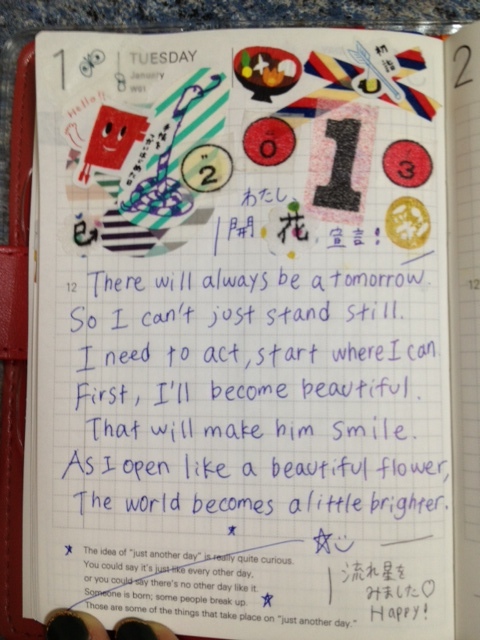 1
TUESDAY
January
W01
2
Hello!!
2
0
1
3
巳
わたし、
開花宣言!
12 There will always be a tomorrow.
So I can't just stand still.
I need to act, start where I can
First, I'll become beautiful.
That will make him smile.
As I open like a beautiful flower,
The world becomes a little brighter.
The idea of "just another day" is really quite curious.
You could say it's just like every other day,
or you could say there's no other day like it.
Someone is born; some people break up.
Those are some of the things that take place on "just another day."
流れ星を
みました♡
Happy!
12